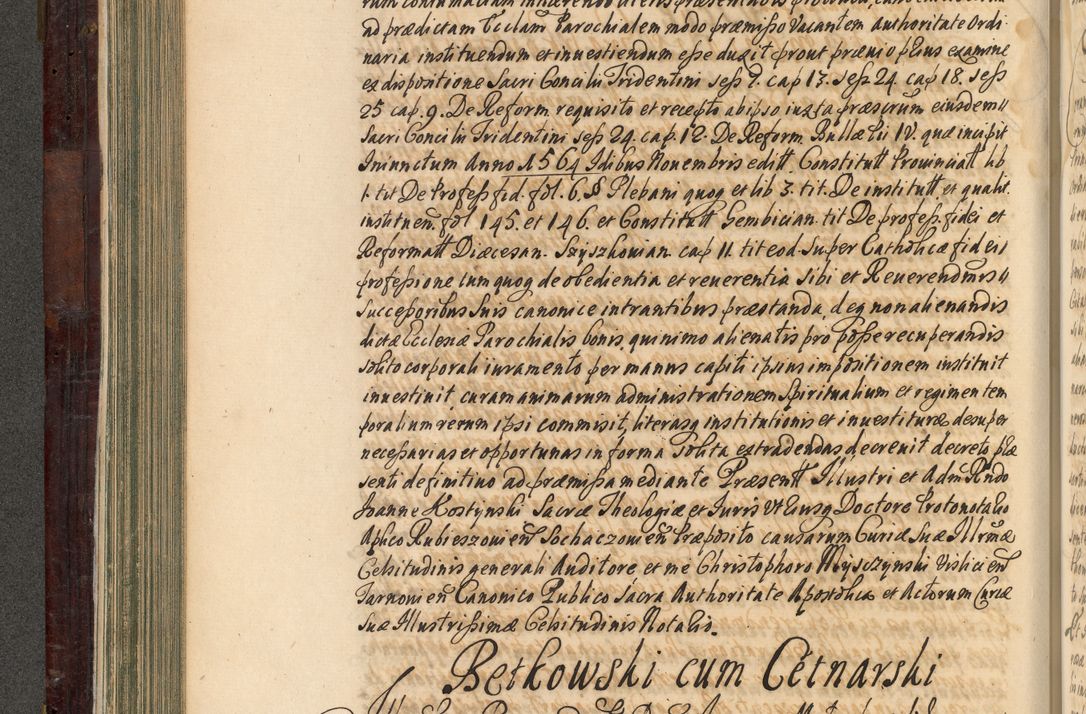 ad prædictam Ecclam Parochialem modo præmisso Vacantem authoritate Ordi
naria instituendum et inuestiendum esse duxit prout præuio plius examine
ex dispositione Sacri Concilii Tridentini sess 7. cap 13. sess 24 cap 18. sess
25 cap. 9. De Reform requisito et recepto ab ipso iuxta præscrum eiusdem
Sacri Concilii Tridentini sess 24. cap 12. De Reform Bullæ Pii IV. quæ incipit
Iniunctum Anno 1564 Idibus Nouembris editt. Constitutt Prouinciall lib
1. tit De Profess fid. fol. 6. § Plebani quoq et lib 3. tit. De institutt et qualit.
instituen fol 145. et 146. et Constitutt Gembician. tit De profess. fidei et
Reformatt Diæcesan. Szyszkouian. cap 11. tit eod. Super Catholicæ fidei
professione tum quoq de obedientia et reuerentia sibi et Reuerendmis
Successoribus Suis canonice intrantibus præstanda, deq non alienandis
dictæ Ecclesiæ Parochialis bonis, quinimo alienatis pro posse recuperandis
solito corporali iuramento per manus capiti ipsius impositionem instituit
inuestiuit, curam animarum administrationem Spiritualium et regimen tem
poralium rerum ipsi commisit, literasq institutionis et inuestituræ desuper
necessarias et opportunas in forma Solita extradendas decreuit decreto præ
senti definitiuo ad præmissa mediante Præsentt Illustri et Adm Rndo
Joanne Kostynski Sacræ Theologiæ et Iuris Vtriusq Doctore Protonotario
Aplico Rubieszouien Sochaczouien Præposito causarum Curiæ Suæ Illrmæ
Celsitudinis generali Auditore, et me Christophoro Mysczynski Vislicien
Tarnouien Canonico Publico Sacra Authoritate Apostolica et Actorum Curiæ
Suæ Illustrissimæ Celsitudinis Notario.
Bętkowski cum Cétnarski